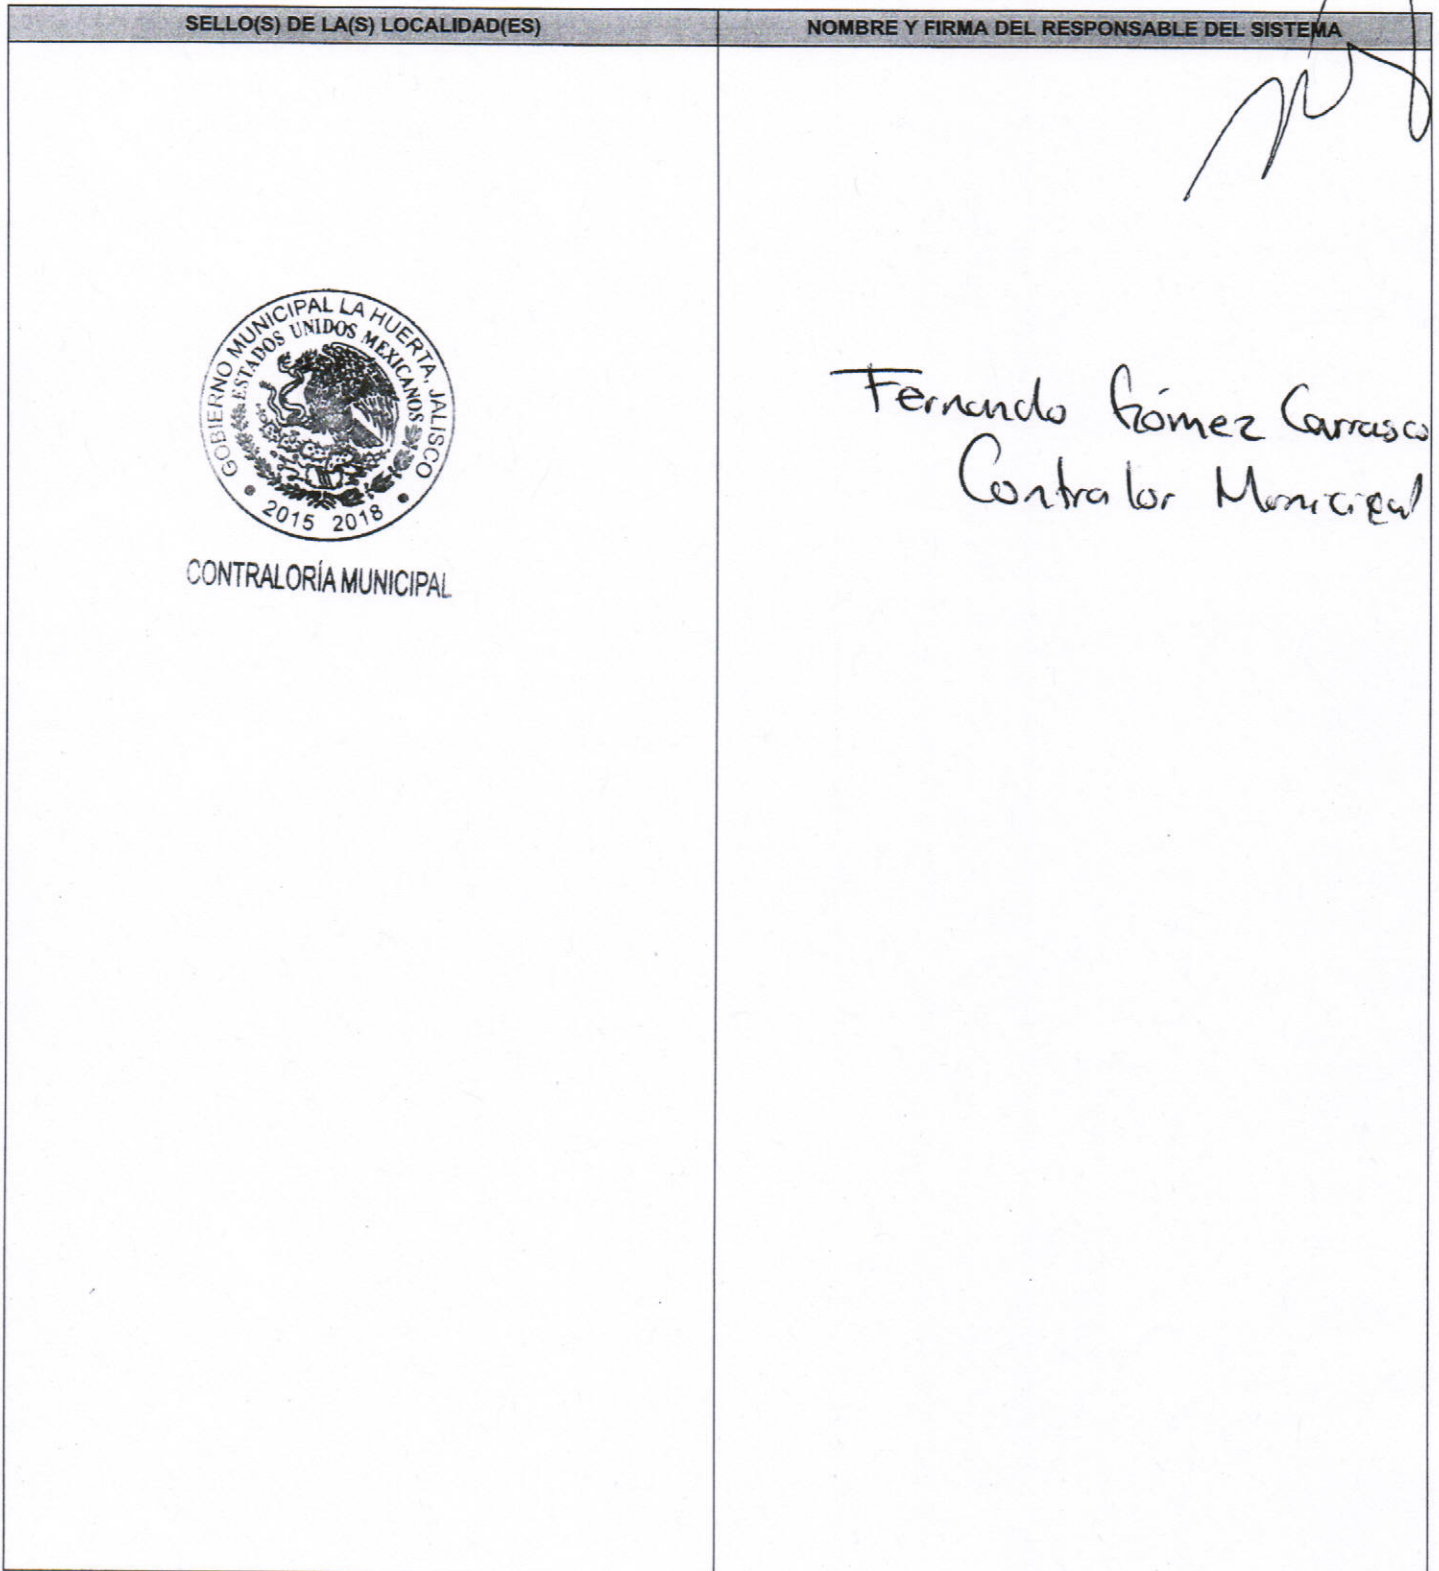 SELLO(S) DE LA(S) LOCALIDAD(ES)
NOMBRE Y FIRMA DEL RESPONSABLE DEL SISTEMA
GOBIERNO MUNICIPAL LA HUERTA, JALISCO
ESTADOS UNIDOS MEXICANOS
2015 2018
CONTRALORÍA MUNICIPAL
Fernando Gómez Carrasco
Contralor Municipal